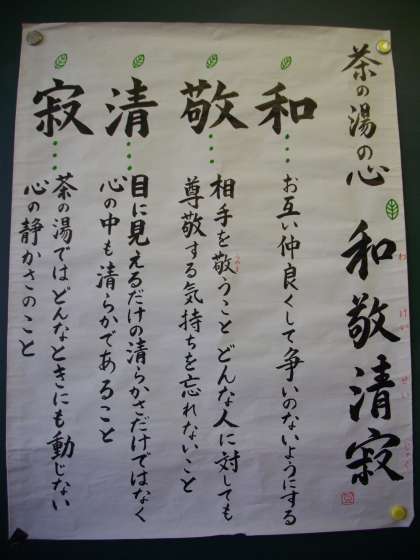 茶の湯の心 和敬清寂
わ けい せい じゃく
和…お互い仲良くして争いのないようにする
敬…相手を敬うこと どんな人に対しても
尊敬する気持ちを忘れないこと
清…目に見えるだけの清らかさだけではなく
心の中も清らかであること
寂…茶の湯ではどんなときにも動じない
心の静かさのこと